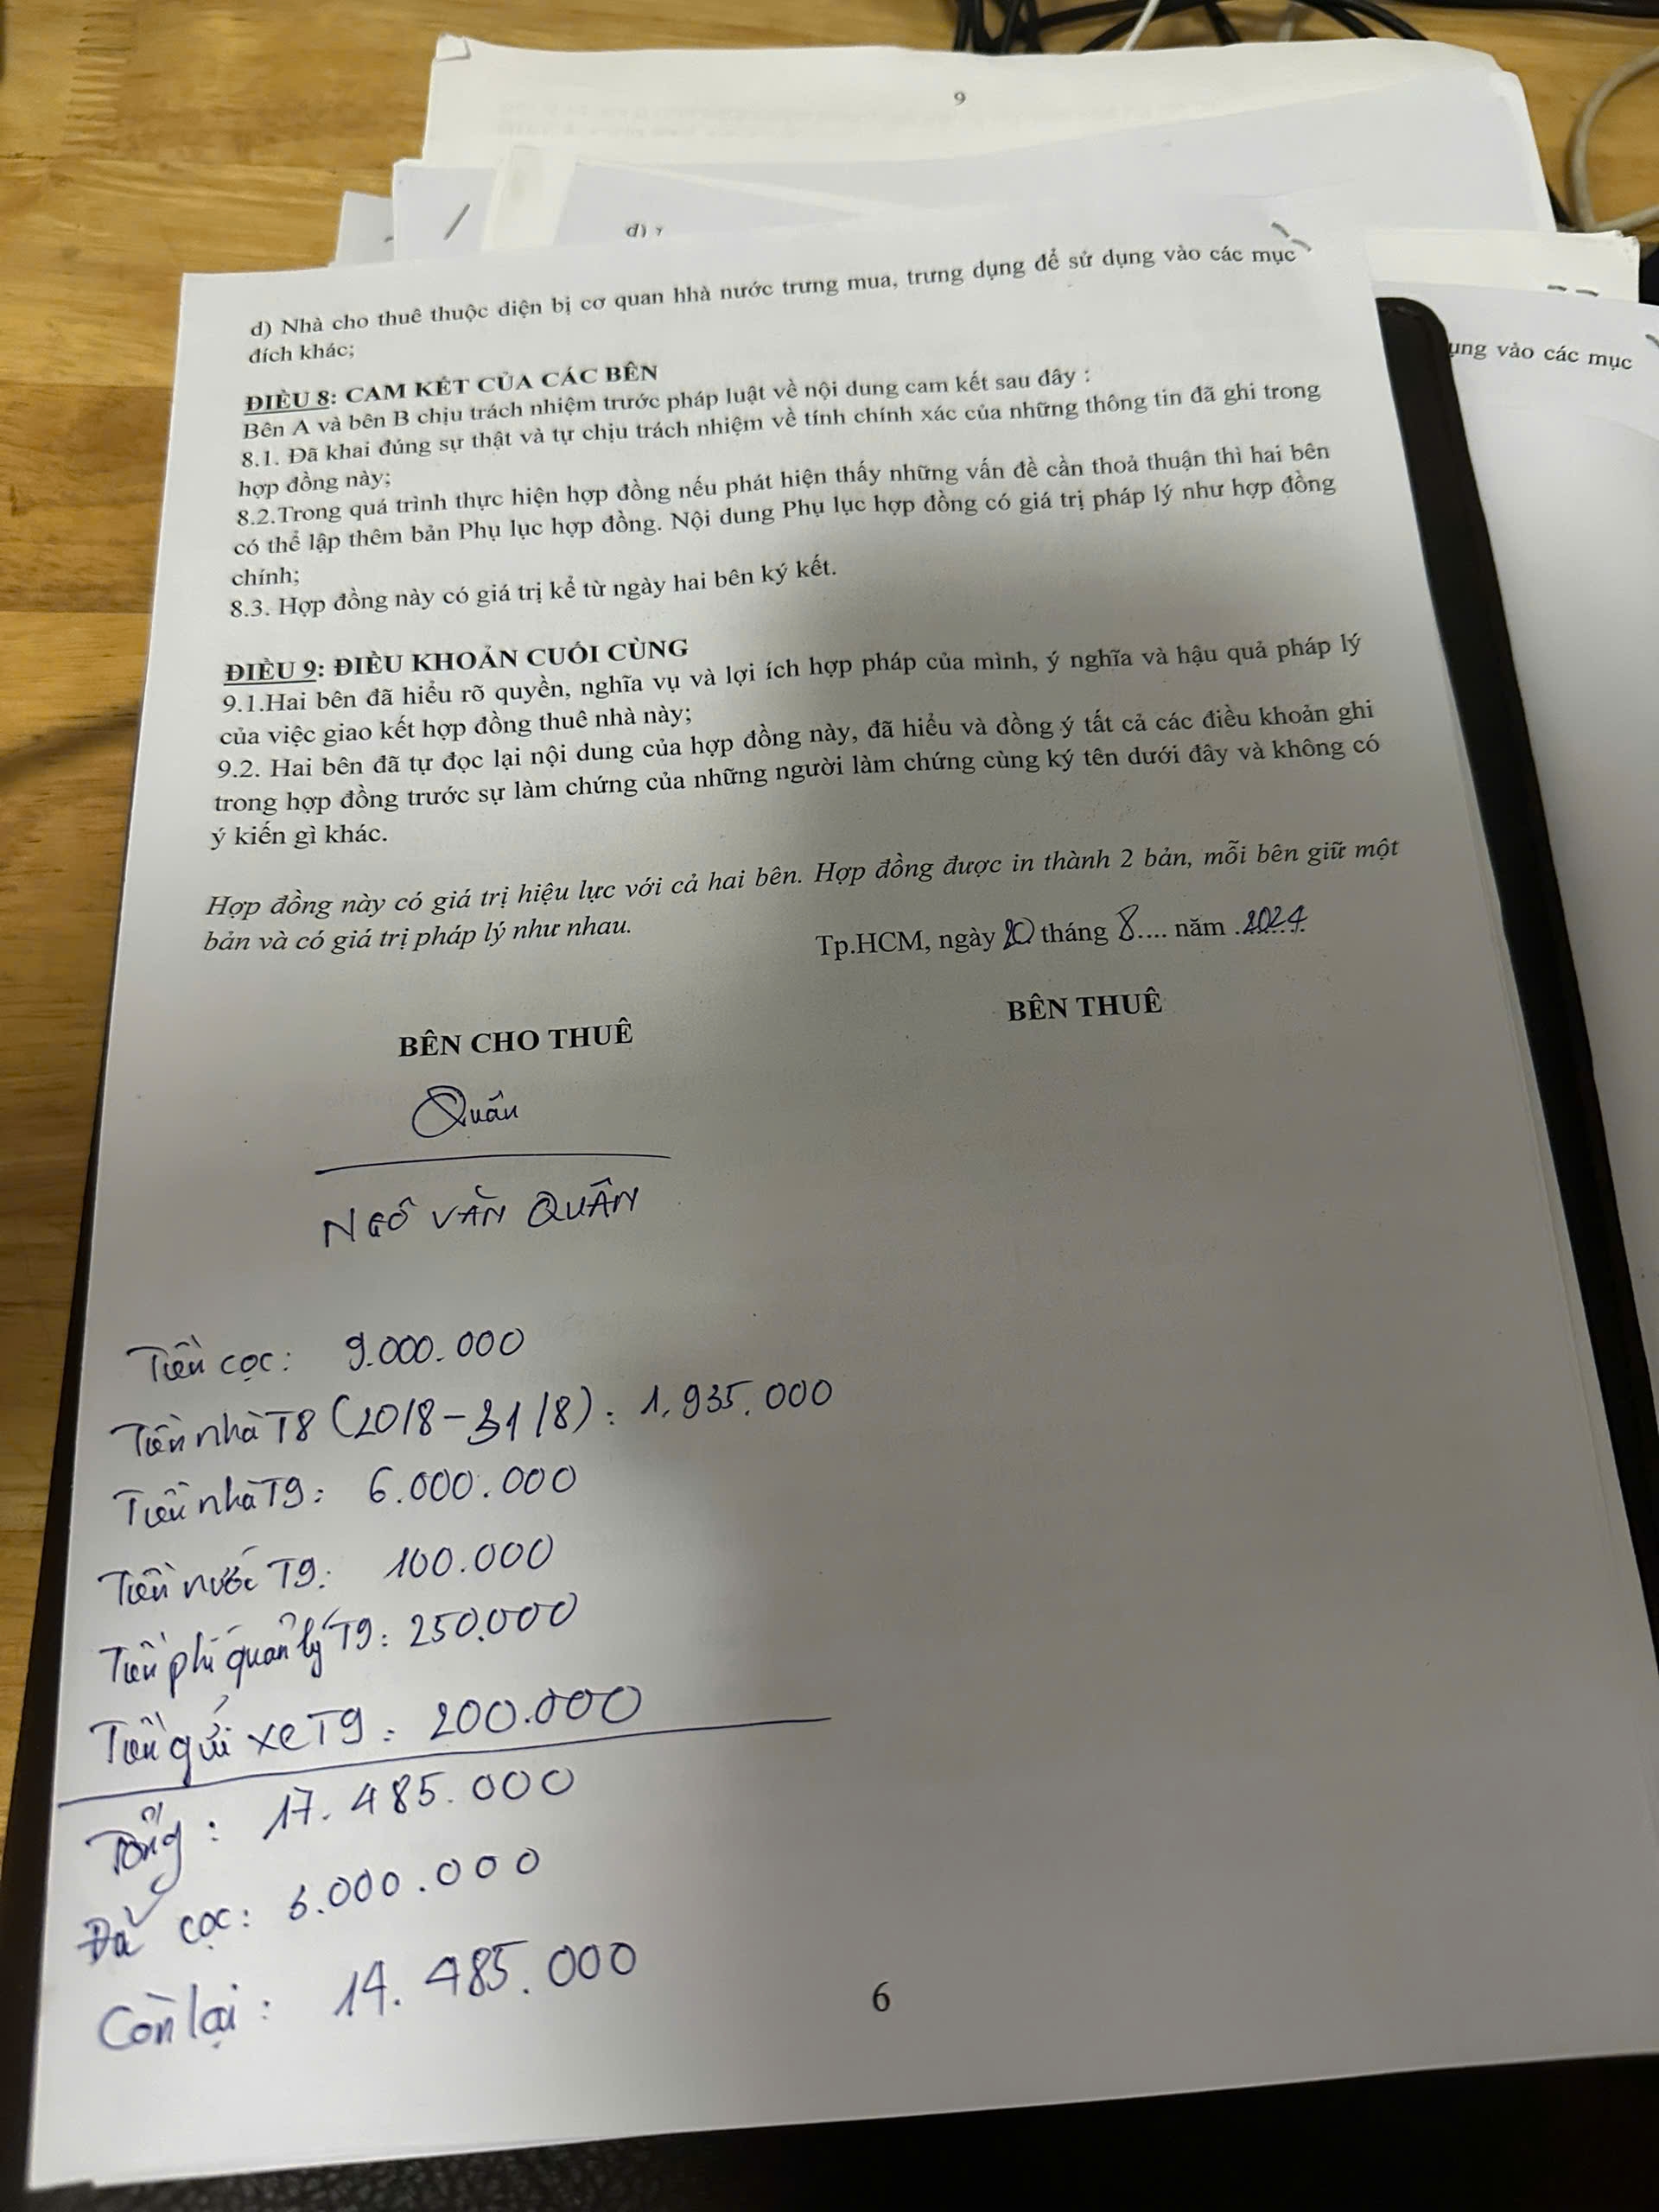 9
d)
d) Nhà cho thuê thuộc diện bị cơ quan hhà nước trưng mua, trưng dụng để sử dụng vào các mục
đích khác;
ụng vào các mục
ĐIỀU 8: CAM KẾT CỦA CÁC BÊN
Bên A và bên B chịu trách nhiệm trước pháp luật về nội dung cam kết sau đây :
8.1. Đã khai đúng sự thật và tự chịu trách nhiệm về tính chính xác của những thông tin đã ghi trong
hợp đồng này;
8.2.Trong quá trình thực hiện hợp đồng nếu phát hiện thấy những vấn đề cần thoả thuận thì hai bên
có thể lập thêm bản Phụ lục hợp đồng. Nội dung Phụ lục hợp đồng có giá trị pháp lý như hợp đồng
chính;
8.3. Hợp đồng này có giá trị kể từ ngày hai bên ký kết.
ĐIỀU 9: ĐIỀU KHOẢN CUỐI CÙNG
9.1.Hai bên đã hiểu rõ quyền, nghĩa vụ và lợi ích hợp pháp của mình, ý nghĩa và hậu quả pháp lý
của việc giao kết hợp đồng thuê nhà này;
9.2. Hai bên đã tự đọc lại nội dung của hợp đồng này, đã hiểu và đồng ý tất cả các điều khoản ghi
trong hợp đồng trước sự làm chứng của những người làm chứng cùng ký tên dưới đây và không có
ý kiến gì khác.
Hợp đồng này có giá trị hiệu lực với cả hai bên. Hợp đồng được in thành 2 bản, mỗi bên giữ một
bản và có giá trị pháp lý như nhau.
Tp.HCM, ngày 20 tháng 8.... năm .2024
BÊN CHO THUÊ
BÊN THUÊ
Quân
NGÔ VĂN QUÂN
Tiền cọc: 9.000.000
Tiền nhà T8 (20/8-31/8): 1.935.000
Tiền nhà T9: 6.000.000
Tiền nước T9: 100.000
Tiền phí quản lý T9: 250.000
Tiền gửi xe T9: 200.000
Tổng: 17.485.000
Đã cọc: 3.000.000
Còn lại: 14.485.000
6